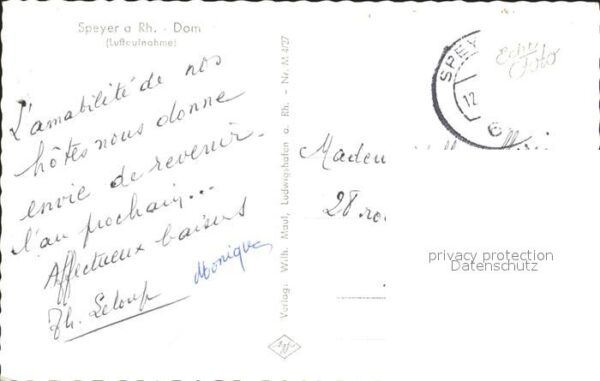 Speyer a Rh. - Dom
(Luftaufnahme)
L'amabilité de nos
hôtes nous donne
envie de revenir
l'an prochain...
Affectueux baisers
Monique
Th. Leloup
Verlag: Wilh. Maul, Ludwigshafen a. Rh. - Nr. M 4/27
SPEY
12
Echt
Foto
Madem
28 ro
privacy protection
Datenschutz